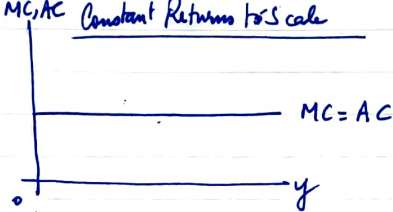 MC, AC Constant Returns to Scale
MC = AC
y
0